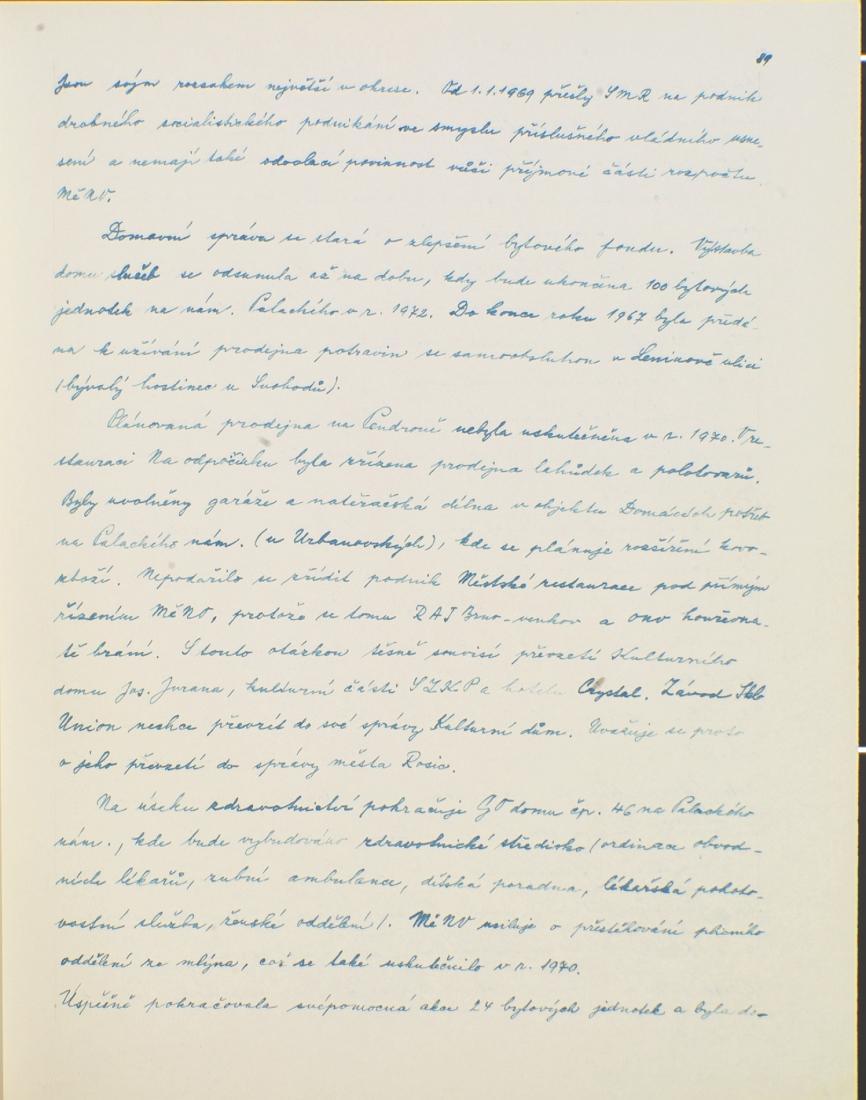 89
jsou svým rozsahem největší v okrese. Od 1.1.1969 přešly SMR na podnik
drobného socialistického podnikání ve smyslu příslušného vládního usne-
sení a nemají také odvolací povinnost vůči příjmové části rozpočtu
MěNV.
Domovní správa se stará o zlepšení bytového fondu. Výstavba
domu služeb se odsunula až na dobu, kdy bude ukončena 100 bytových
jednotek na nám. Palackého v r. 1972. Do konce roku 1967 byla předá-
na k užívání prodejna potravin se samoobsluhou v Leninově ulici
(bývalý hostinec u Svobodů).
Plánovaná prodejna na Pendrově nebyla uskutečněna v r. 1970. V re-
stauraci Na odpočinku byla zřízena prodejna lahůdek a polotovarů.
Byly uvolněny garáže a natěračská dílna v objektu Domácích potřeb
na Palackého nám. (u Urbanovských), kde se plánuje rozšíření kovo-
zboží. Nepodařilo se zřídit podnik Městské restaurace pod přímým
řízením MěNV, protože se tomu RAJ Brno-venkov a ONV houževna-
tě brání. S touto otázkou těsně souvisí převzetí Kulturního
domu Jos. Jurana, kulturní části SZKP a hotelu Crystal. Závod Skl
Union nechce převzít do své správy Kulturní dům. Uvažuje se proto
o jeho převzetí do správy města Rosic.
Na úseku zdravotnictví pokračuje GO domu čp. 46 na Palackého
nám., kde bude vybudováno zdravotnické středisko (ordinace obvod-
ních lékařů, zubní ambulance, dětská poradna, lékařská pohoto-
vostní služba, ženské oddělení). MěNV usiluje o přestěhování plicního
oddělení ze mlýna, což se také uskutečnilo v r. 1970.
Úspěšně pokračovala svépomocná akce 24 bytových jednotek a byla do-